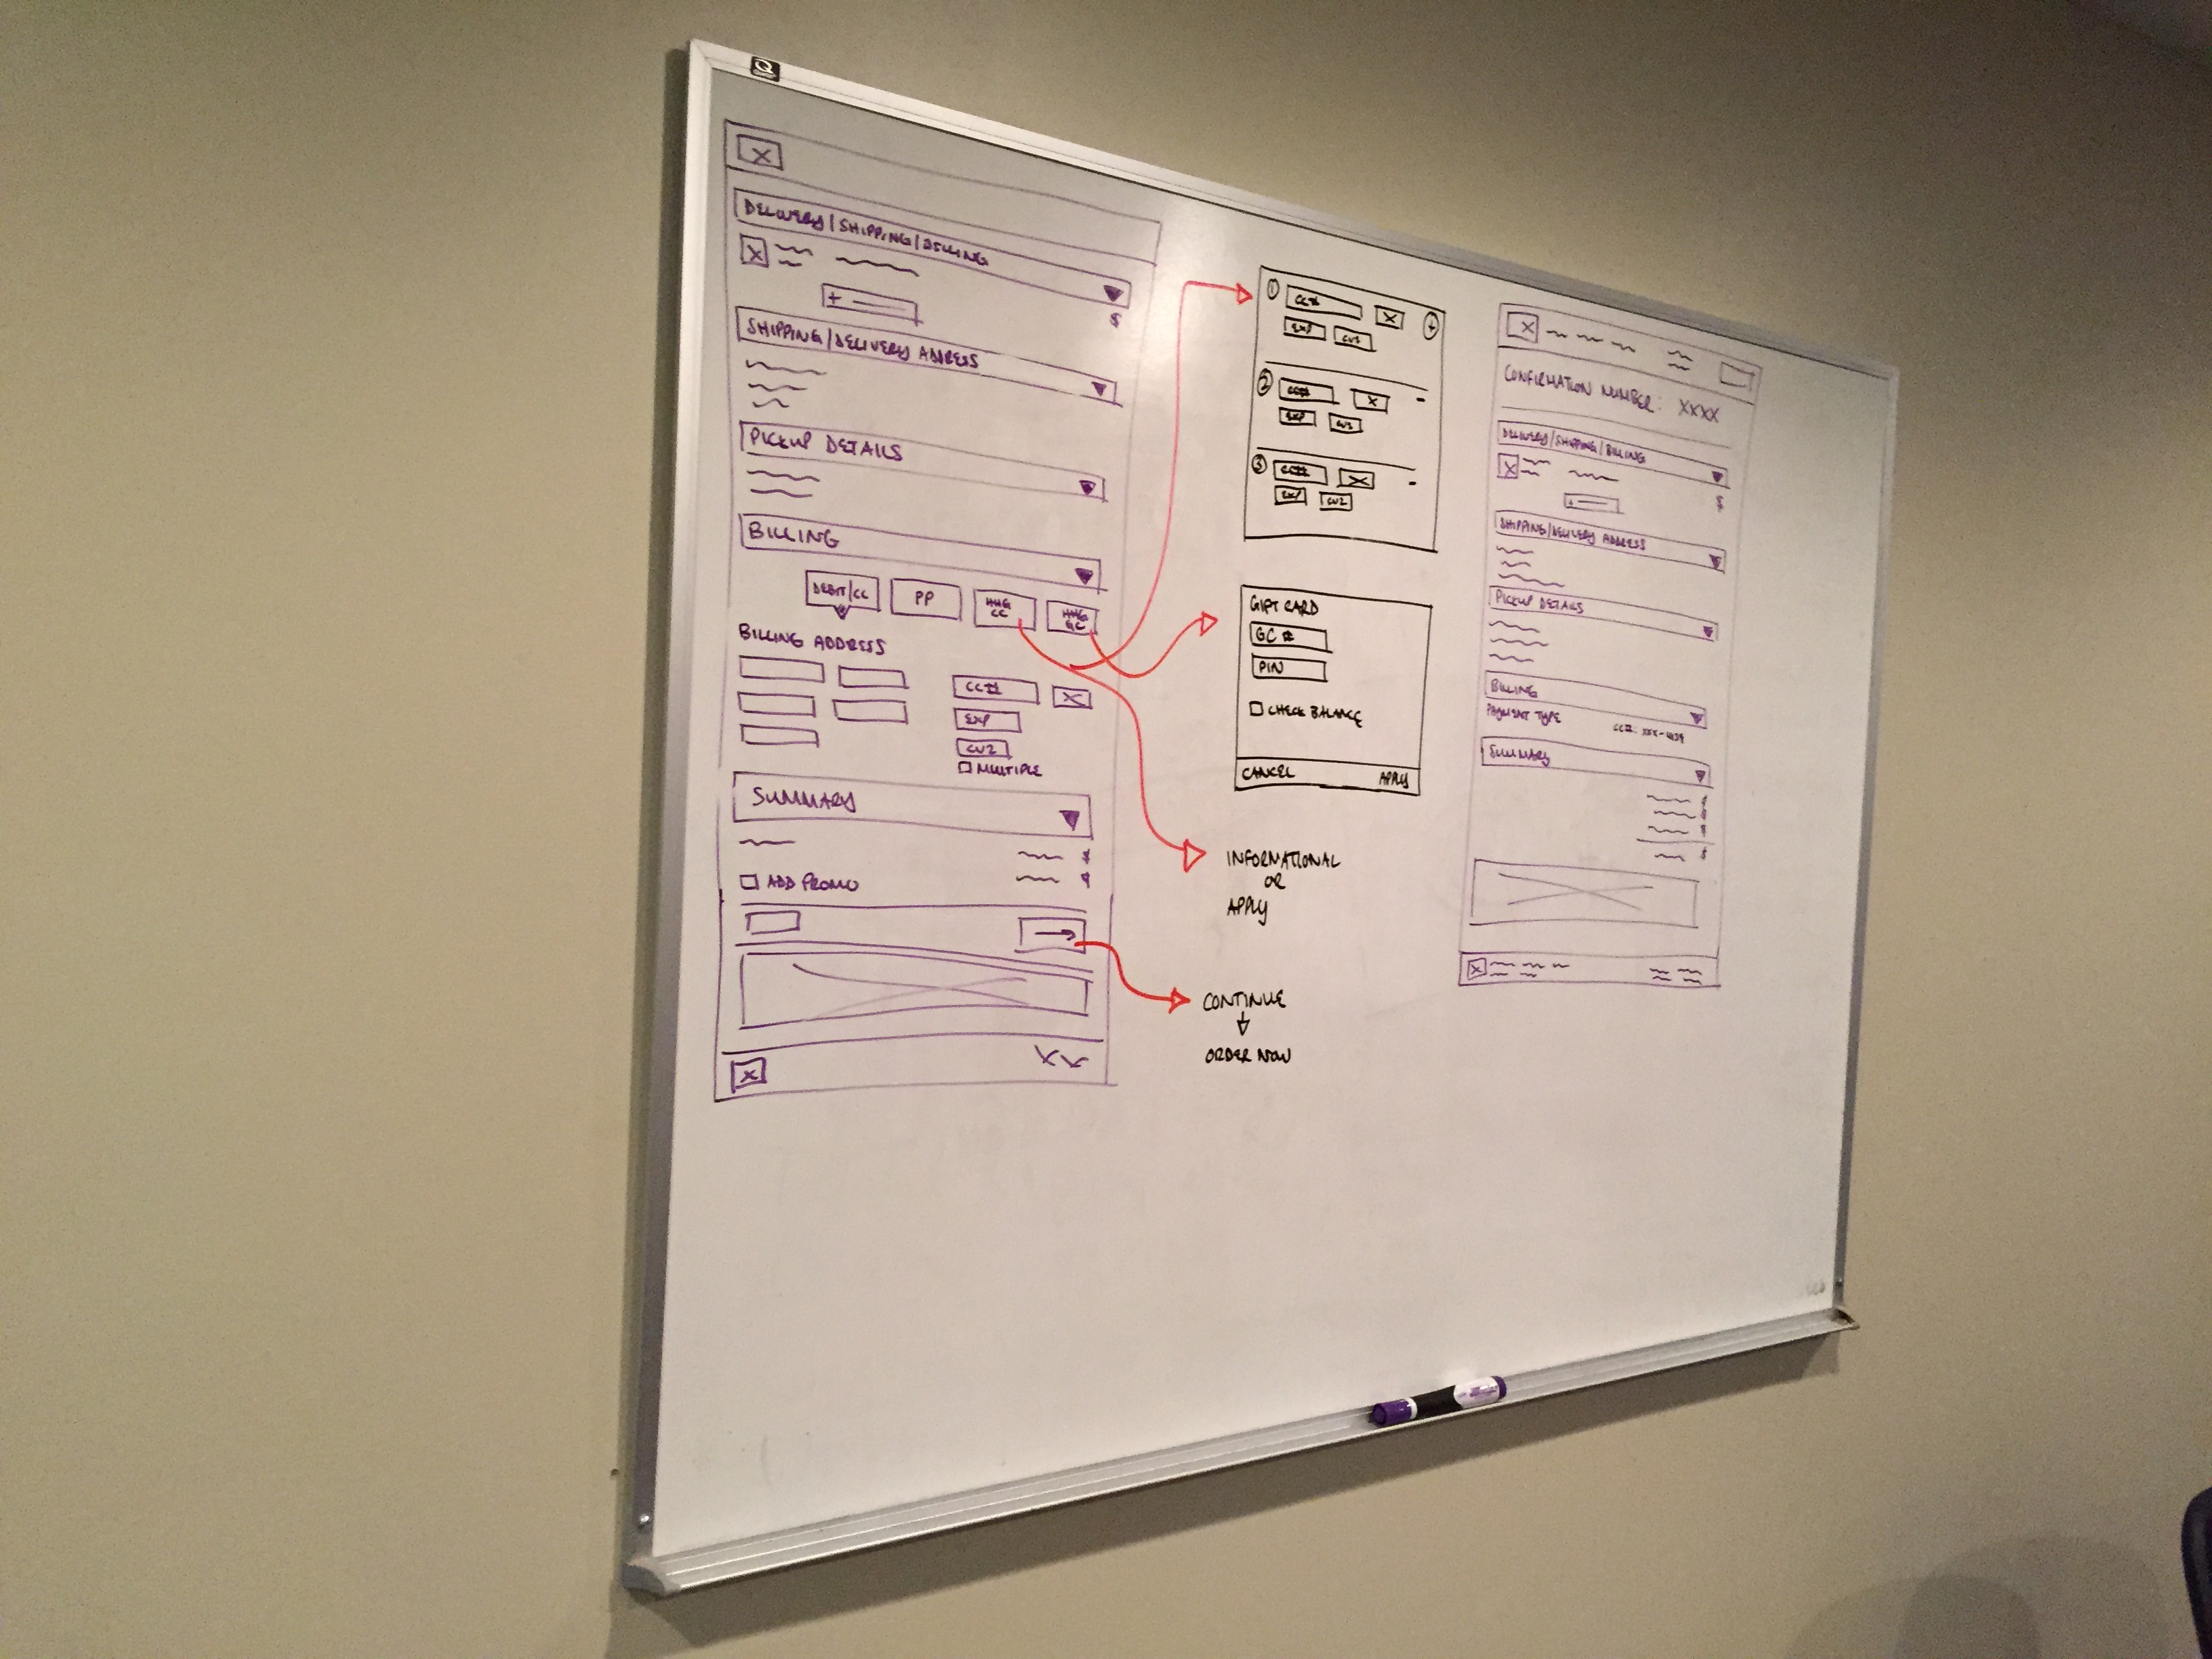 DELIVERY/SHIPPING/BILLING
$
+
SHIPPING/DELIVERY ADDRESS
PICKUP DETAILS
BILLING
DEBIT/CC
PP
HHG
CC
HHG
GC
BILLING ADDRESS
CC#
EXP
CV2
MULTIPLE
SUMMARY
$
ADD PROMO
$
1
CC#
+
EXP
CV2
2
CC#
-
EXP
CV2
3
CC#
-
EXP
CV2
GIFT CARD
GC #
PIN
CHECK BALANCE
CANCEL
APPLY
INFORMATIONAL
OR
APPLY
CONTINUE
ORDER NOW
CONFIRMATION NUMBER: XXXX
DELIVERY/SHIPPING/BILLING
$
+
SHIPPING/DELIVERY ADDRESS
PICKUP DETAILS
BILLING
PAYMENT TYPE
CC#: XXX-
SUMMARY
$
$
$
$